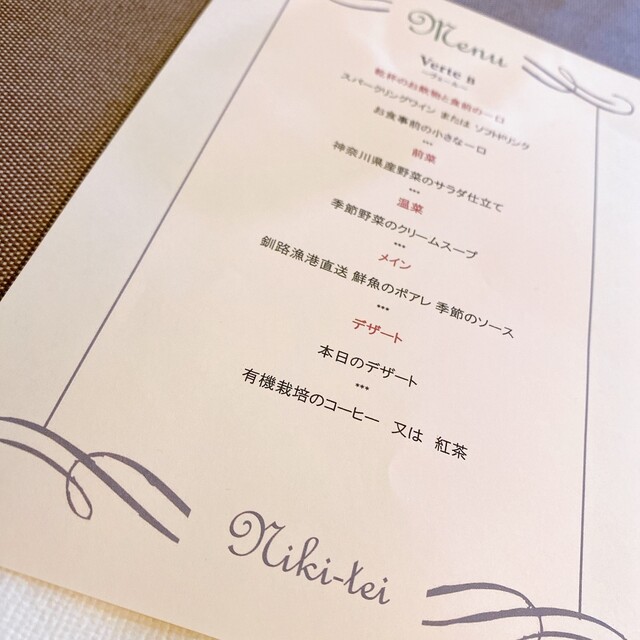 Menu
Verte B
～ヴェール～
乾杯のお飲物と食前の一口
スパークリングワイン または ソフトドリンク
お食事前の小さな一口
***
前菜
神奈川県産野菜のサラダ仕立て
***
温菜
季節野菜のクリームスープ
***
メイン
釧路漁港直送 鮮魚のポアレ 季節のソース
***
デザート
本日のデザート
***
有機栽培のコーヒー 又は 紅茶
Niki-tei